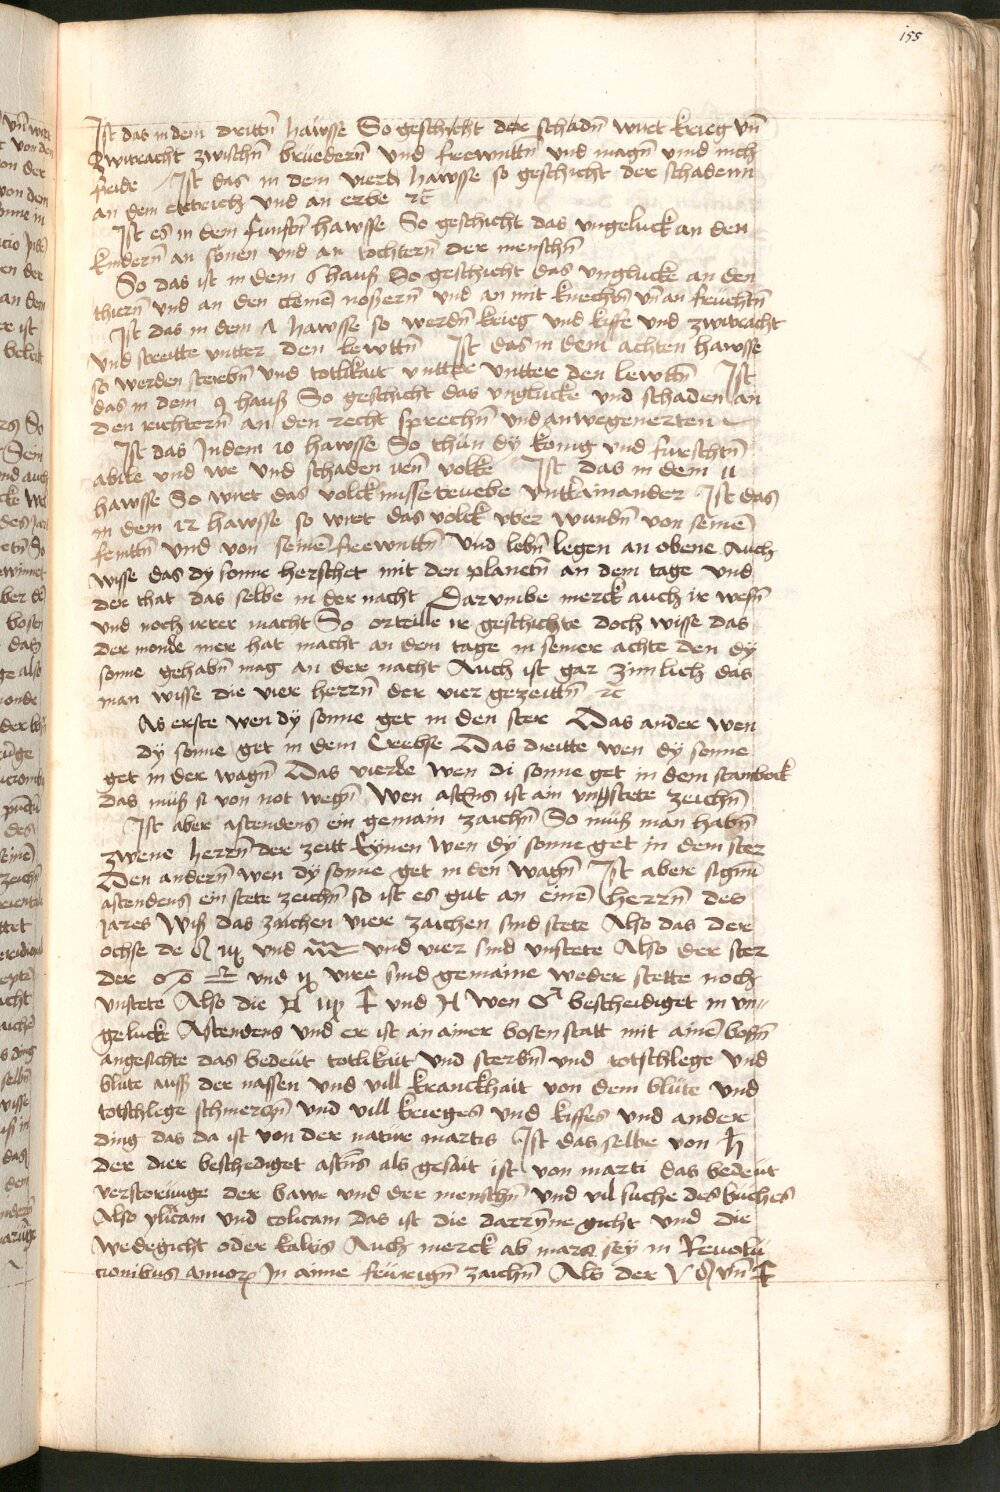 155
Ist das in dem dritten hawsse So geschicht der schadn wirt krieg vn̄
Zwitracht zwischn̄ bruedern̄ vnd frewnttn̄ vnd magn̄ vnnd nich
freide Ist das in dem vierd hawsse so geschicht der schadenn
an dem ertreich vnd an erbe ꝛc̄
Ist es in dem funftn̄ hawsse So geschicht das vngeluck an den
kindern̄ an sonen vnd an tochtern̄ der menschn̄
So das ist in dem 6 hauß So geschicht das vnglucke an den
thiern̄ vnd an den clemē noßern̄ vnd an mit knechtn̄ vn̄ an fruchtn̄
Ist das in dem Λ hawsse so werdn̄ krieg vnd kiffe vnd zwitracht
vnd streitte vntter den lewttn̄ Ist das in dem achten hawsse
so werden sterbn̄ vnd totlikait vntter vntter den lewttn̄ Ist
das in dem 9 hauß So geschicht das vnglucke vnd schaden an
den richtern̄ an den recht sprechn̄ vnd an wegenerten
Ist das In dem 10 hawsse So thün dÿ konig vnd furschtn̄
vnd we vnd schaden volke Ist das in dem 11
hawsse So wirt das volck misse trewbe vntterainander Ist das
in dem 12 hawsse so wirt das volck vber wundn̄ von seinē
feinttn̄ vnd von seinē frewnttn̄ Vnd lebn̄ legen an obene Auch
wisse das dÿ sonne herschet mit den planetn̄ an dem tage vnd
der that das selbe in der nacht Darumbe merck auch ir wesn̄
vnd noch irer macht So orteille ir geschichte Doch wisse das
der monde mer hat macht an dem tage in seiner achte den dÿ
sonne gehabn̄ mag an der nacht Auch ist gar zimlich das
man wisse die vier herrn̄ der vier gezeittn̄ ꝛc̄
As erste wen dÿ sonne get in den ster Das ander wen
dÿ sonne get in dem Crebse Das dritte wen dÿ sonne
get in der wagn̄ Das vierde wen di sonne get in dem stainbock
das müß si von not wegn̄ Wen ascn̄s ist ain vnstete zeichn̄
Ist aber ascendens ein gemain zaichn̄ So müß man habn̄
zwene herrn̄ der zeitt Eÿnen wen dÿ sonne get in dem ster
Den andern̄ wen dÿ sonne get in den wagn̄ Ist aber signū
ascendens ein stete zeichn̄ so ist es gut an einē herrn̄ des
jares Wiß das zaichen vier zaichen sind stete Also das der
ochse de ♌ ♏ vnd ♒ vnd vier sind vnstete Also der ster
der ♋ ♎ vnd ♑ vire sind gemaine weder stette noch
vnstete Also die ♊ ♍ ♐ vnd ♓ Wen ♂ bescheidiget in vn
gelucke Ascendens vnd er ist an ainer bosen statt mit ainē bosn̄
angesichte das bedeut totlikait vnd sterbn̄ vnd totschlege vnd
blute auß der nassen vnd vill kranckhait von dem blüte vnd
totschlege schmerczn̄ vnd vill krieges vnd kiffes vnd ander
ding das da ist von der natüre martis Ist das selbe von ♄
der dier beschediget ascn̄s als gesait ist von marti das bedeüt
verstorunge der bawe vnd der menschn̄ vnd vil suche des büches
Also ylicam vnd colicam das ist die darrÿnne gicht vnd die
wedegicht oder kaltis Auch merck ab mars sey in Reuolu
cionibus annorꝝ in aime feürign̄ zaichn̄ Als der ♈ ♌ vn̄ ♐